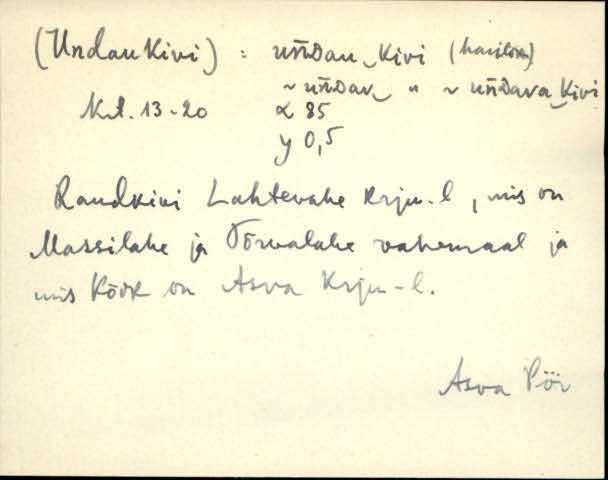 (Undau Kivi) : uńdau‿Kivi (harilik)
~ uńdav‿ " ~ uńdava‿Kivi
Kd. 13-20 x 85
y 0,5
Randkivi Lahtevahe krju-l, mis on
Massilahe ja Tõrvalahe vahemaal ja
mis kõik on Asva Krju-l.
Asva Pöi